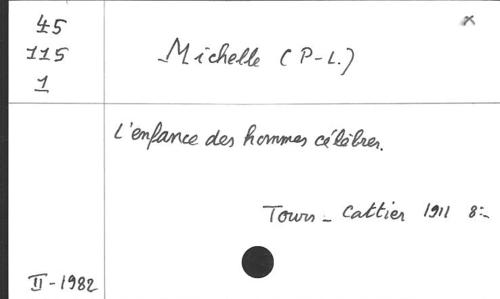 45
115
1
Michelle (P-L.)
x
L'enfance des hommes célèbres.
Tours - Cattier 1911 8:-
II-1982